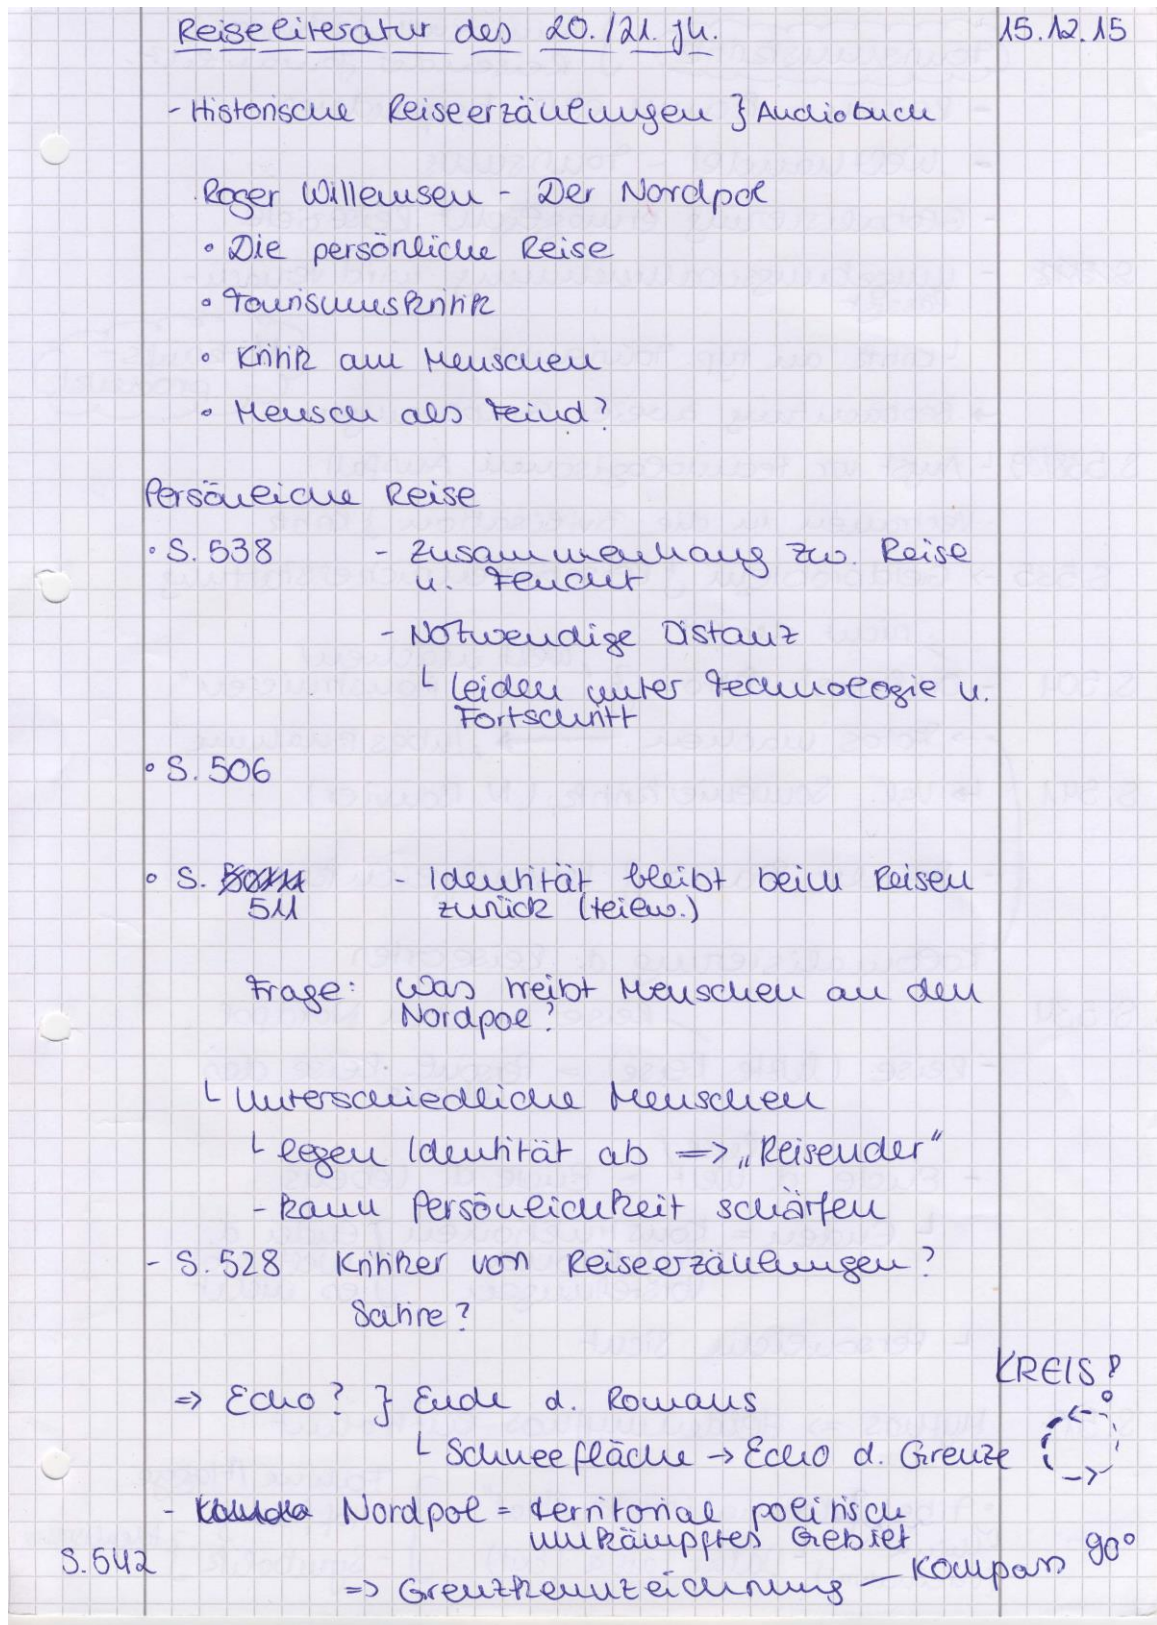 Reiseliteratur des 20./21. Jh. 15.12.15
- Historische Reiseerzählungen } Audiobuch
Roger Willemsen - Der Nordpol
• Die persönliche Reise
• Tourismuskritik
• Kritik am Menschen
• Mensch als Feind?
Persönliche Reise
• S. 538 - Zusammenhang zw. Reise
u. Flucht
- Notwendige Distanz
└ Leiden unter Technologie u.
Fortschritt
• S. 506
• S. - Identität bleibt beim Reisen
511 zurück (teilw.)
Frage: Was treibt Menschen an den
Nordpol?
└ Unterschiedliche Menschen
└ legen Identität ab => „Reisender"
- kann Persönlichkeit schärfen
- S. 528 Kritiker von Reiseerzählungen?
Satire?
KREIS!
=> Echo? } Ende d. Romans
└ Schneefläche → Echo d. Grenze
- Nordpol = territorial politisch
umkämpftes Gebiet
S. 542 => Grenzkennzeichnung — Kompass 90°